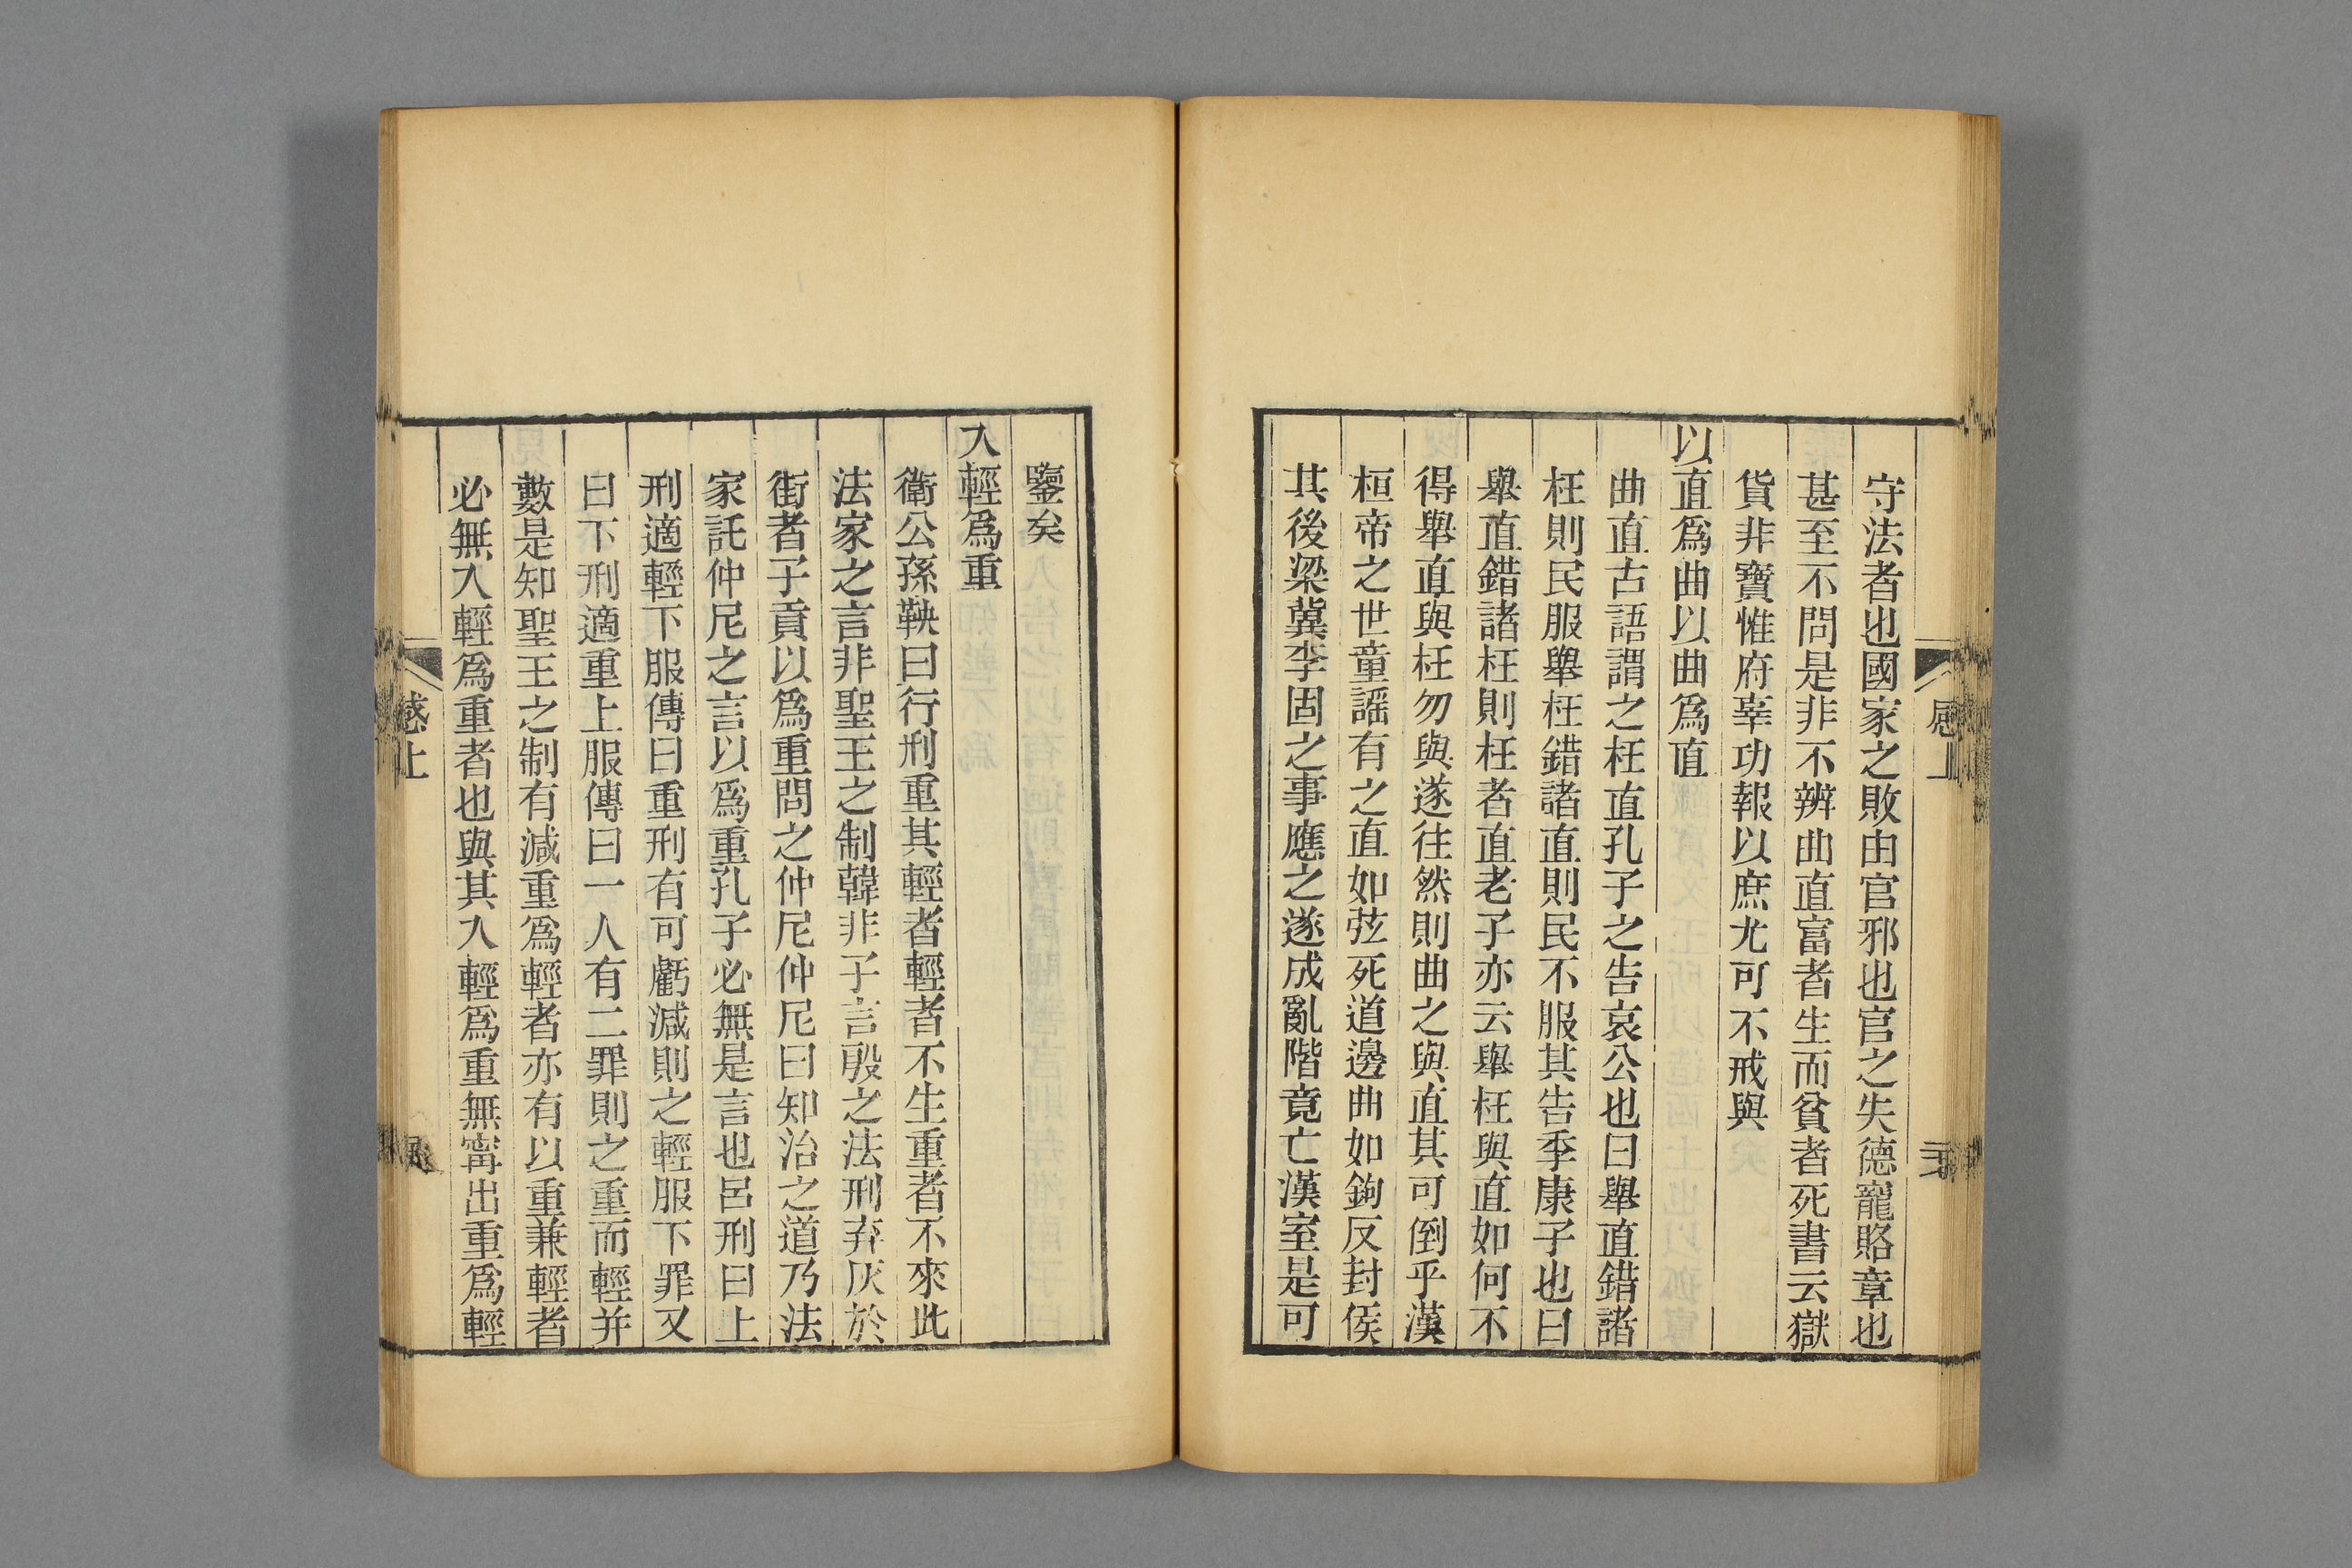 守法者也國家之敗由官邪也官之失德寵賂章也
甚至不問是非不辨曲直富者生而貧者死書云獄
貨非寶惟府辜功報以庶尤可不戒與
以直爲曲以曲爲直
曲直古語謂之枉直孔子之告哀公也曰舉直錯諸
枉則民服舉枉錯諸直則民不服其告季康子也曰
舉直錯諸枉則枉者直老子亦云舉枉與直如何不
得舉直與枉勿與遂往然則曲之與直其可倒乎漢
桓帝之世童謡有之直如弦死道邊曲如鉤反封侯
其後梁冀李固之事應之遂成亂階竟亡漢室是可
鑒矣
入輕爲重
衛公孫鞅曰行刑重其輕者輕者不生重者不來此
法家之言非聖王之制韓非子言殷之法刑弃灰於
街者子貢以爲重問之仲尼仲尼曰知治之道乃法
家託仲尼之言以爲重孔子必無是言也呂刑曰上
刑適輕下服傳曰重刑有可虧減則之輕服下罪又
曰下刑適重上服傳曰一人有二罪則之重而輕并
數是知聖王之制有減重爲輕者亦有以重兼輕者
必無入輕爲重者也與其入輕爲重無甯出重爲輕
感上